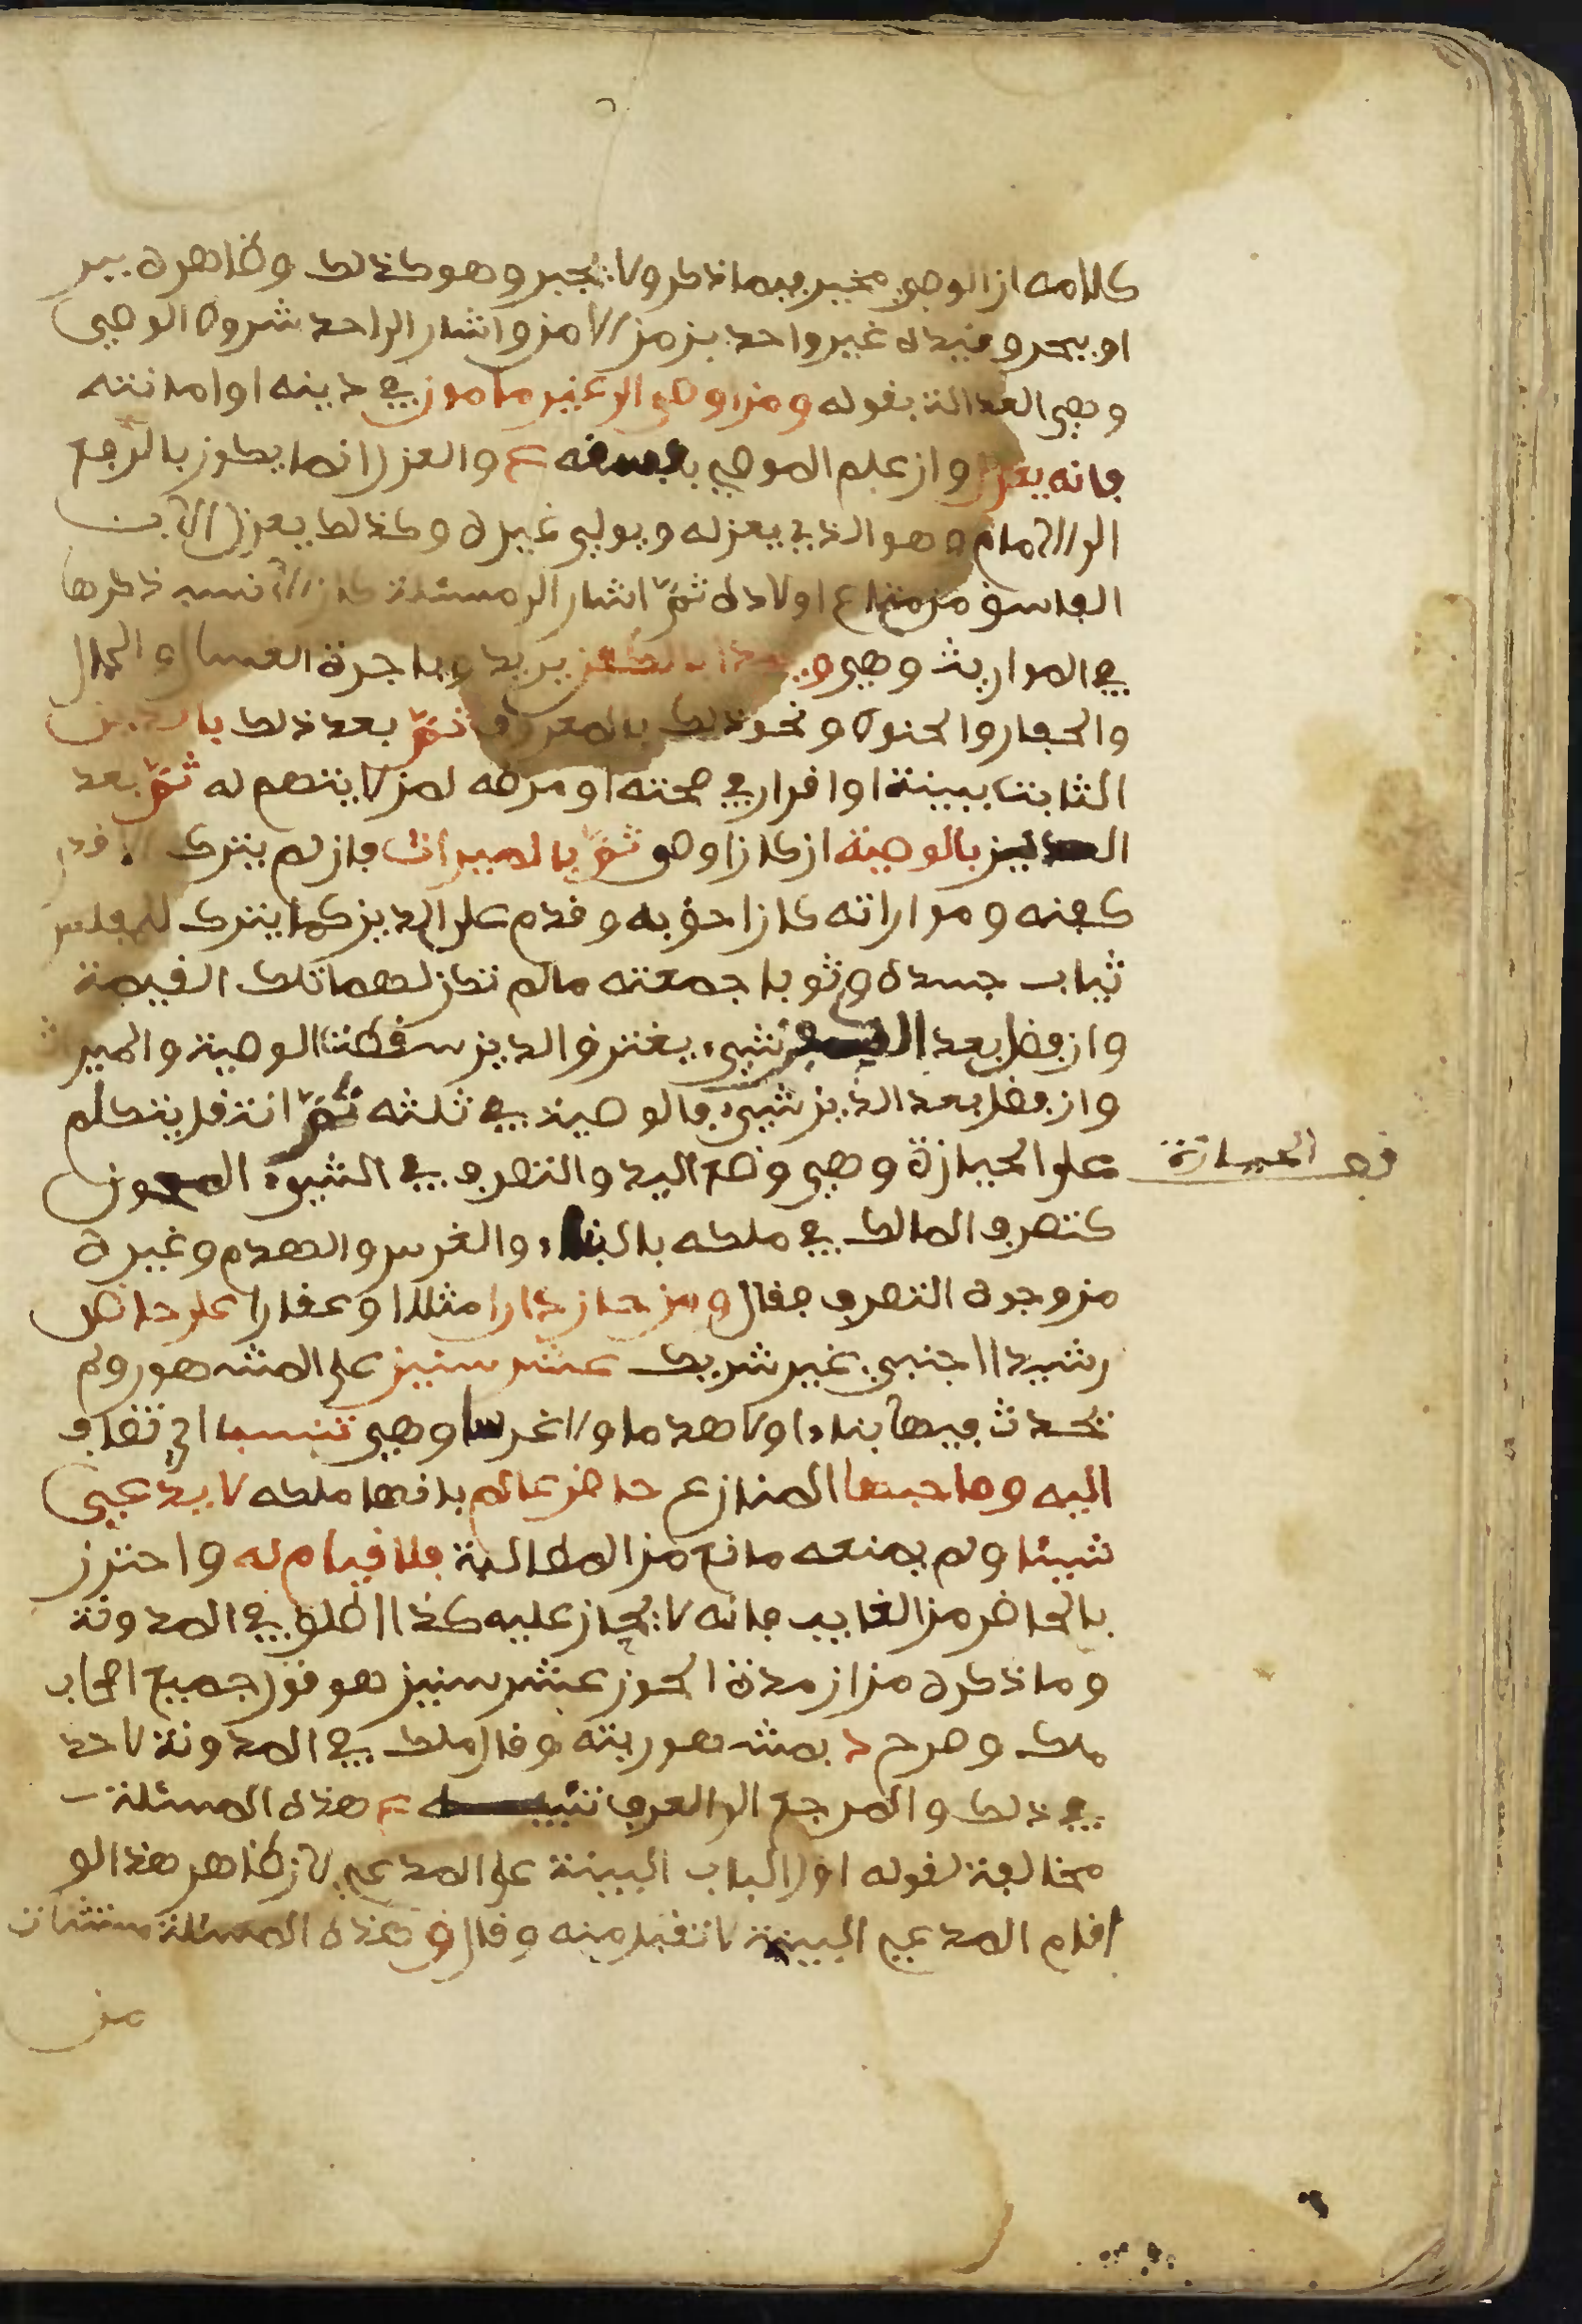 كلامه ان الوصي مخير فيما ذكر ولا يجبر وهو كذلك وظاهره ببر
او بحر وقيده غير واحد بزمن الامن واشار الى احد شروط الوصي
وهي العدالة بقوله ومن اوصى الى غير مامون في دينه او امانته
فانه يعزل وان علم الموصي بفسقه ع والعزل انما يكون بالرفع
الى الامام وهو الذي يعزله ويولي غيره وكذلك يعزل الاب
الفاسق من متاع اولاده ثم اشار الى مسئلة كان الانسب ذكرها
في المواريث وهي ويبدا بالكفن يريد وباجرة الغسال والحمال
والحفار والحنوط ونحو ذلك بالمعروف ثم بعد ذلك بالدين
الثابت ببينة او اقرار في صحته او مرضه لمن لا يتهم له ثم بعد
الدين بالوصية ان كان اوصى ثم بالميراث فان لم يترك الا قدر
كفنه ومواراته كان احق به وقدم على الدين كما يترك للمفلس
ثياب جسده وثوبا جمعته مالم تكن لهما تلك القيمة
وان فضل بعد شيء يغترف الدين سقطت الوصية والميراث
وان فضل بعد الدين شيء فالوصية في ثلثه ثم انتقل يتكلم
على الحيازة وهي وضع اليد والتصرف في الشيء المحوز
كتصرف المالك في ملكه بالبناء والغرس والهدم وغيره
من وجوه التصرف فقال ومن حاز دارا مثلا او عقارا على حاضر
رشيد اجنبي غير شريك عشر سنين على المشهور ولم
تحدث فيها بناء ولا هدما ولا غرسا وهي تنسب اي تضاف
اليه وصاحبها المنازع حاضر عالم بانها ملكه لا يدعي
شيئا ولم يمنعه مانع من المطالبة فلا قيام له واحترز
بالحاضر من الغايب فانه لا يحاز عليه كذا اطلق في المدونة
وما ذكره من ان مدة الحوز عشر سنين هو قول جميع اصحاب
ملك وصرح د بمشهوريته وقال ملك في المدونة لا حد
في ذلك والمرجع الى العرف تنبيه ع هذه المسئلة
مخالفة لقوله اول الباب البينة على المدعي لان ظاهر هذا لو
اقام المدعي البينة لا تقبل منه وقال ق هذه المسئلة مستثناة
من
قف الحيازة